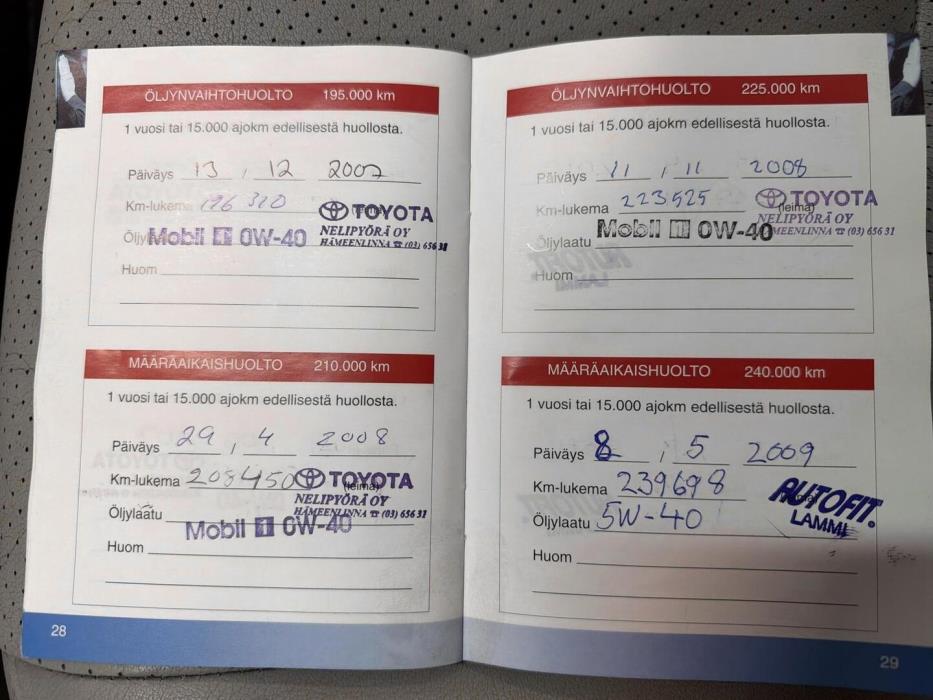 ÖLJYNVAIHTOHUOLTO 195.000 km
1 vuosi tai 15.000 ajokm edellisestä huollosta.
Päiväys 13 , 12 2007
Km-lukema 196 320
TOYOTA
(leima)
NELIPYÖRÄ OY
HÄMEENLINNA ☎ (03) 656 31
Mobil 1 0W-40
Huom
MÄÄRÄAIKAISHUOLTO 210.000 km
1 vuosi tai 15.000 ajokm edellisestä huollosta.
Päiväys 29 , 4 2008
Km-lukema 208450
TOYOTA
(leima)
NELIPYÖRÄ OY
HÄMEENLINNA ☎ (03) 656 31
Öljylaatu
Mobil 1 0W-40
Huom
28
ÖLJYNVAIHTOHUOLTO 225.000 km
1 vuosi tai 15.000 ajokm edellisestä huollosta.
Päiväys 11 , 11 2008
Km-lukema 223525
TOYOTA
(leima)
NELIPYÖRÄ OY
HÄMEENLINNA ☎ (03) 656 31
Öljylaatu Mobil 1 0W-40
Huom
MÄÄRÄAIKAISHUOLTO 240.000 km
1 vuosi tai 15.000 ajokm edellisestä huollosta.
Päiväys 8 , 5 2009
Km-lukema 239698
AUTOFIT.
LAMMI
Öljylaatu 5W-40
Huom
29